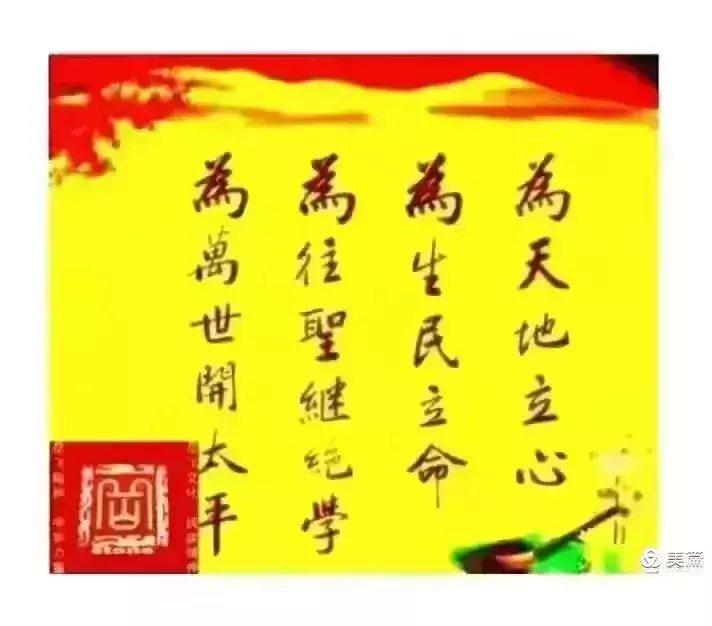 為天地立心
為生民立命
為往聖継絕學
為萬世開太平
美篇